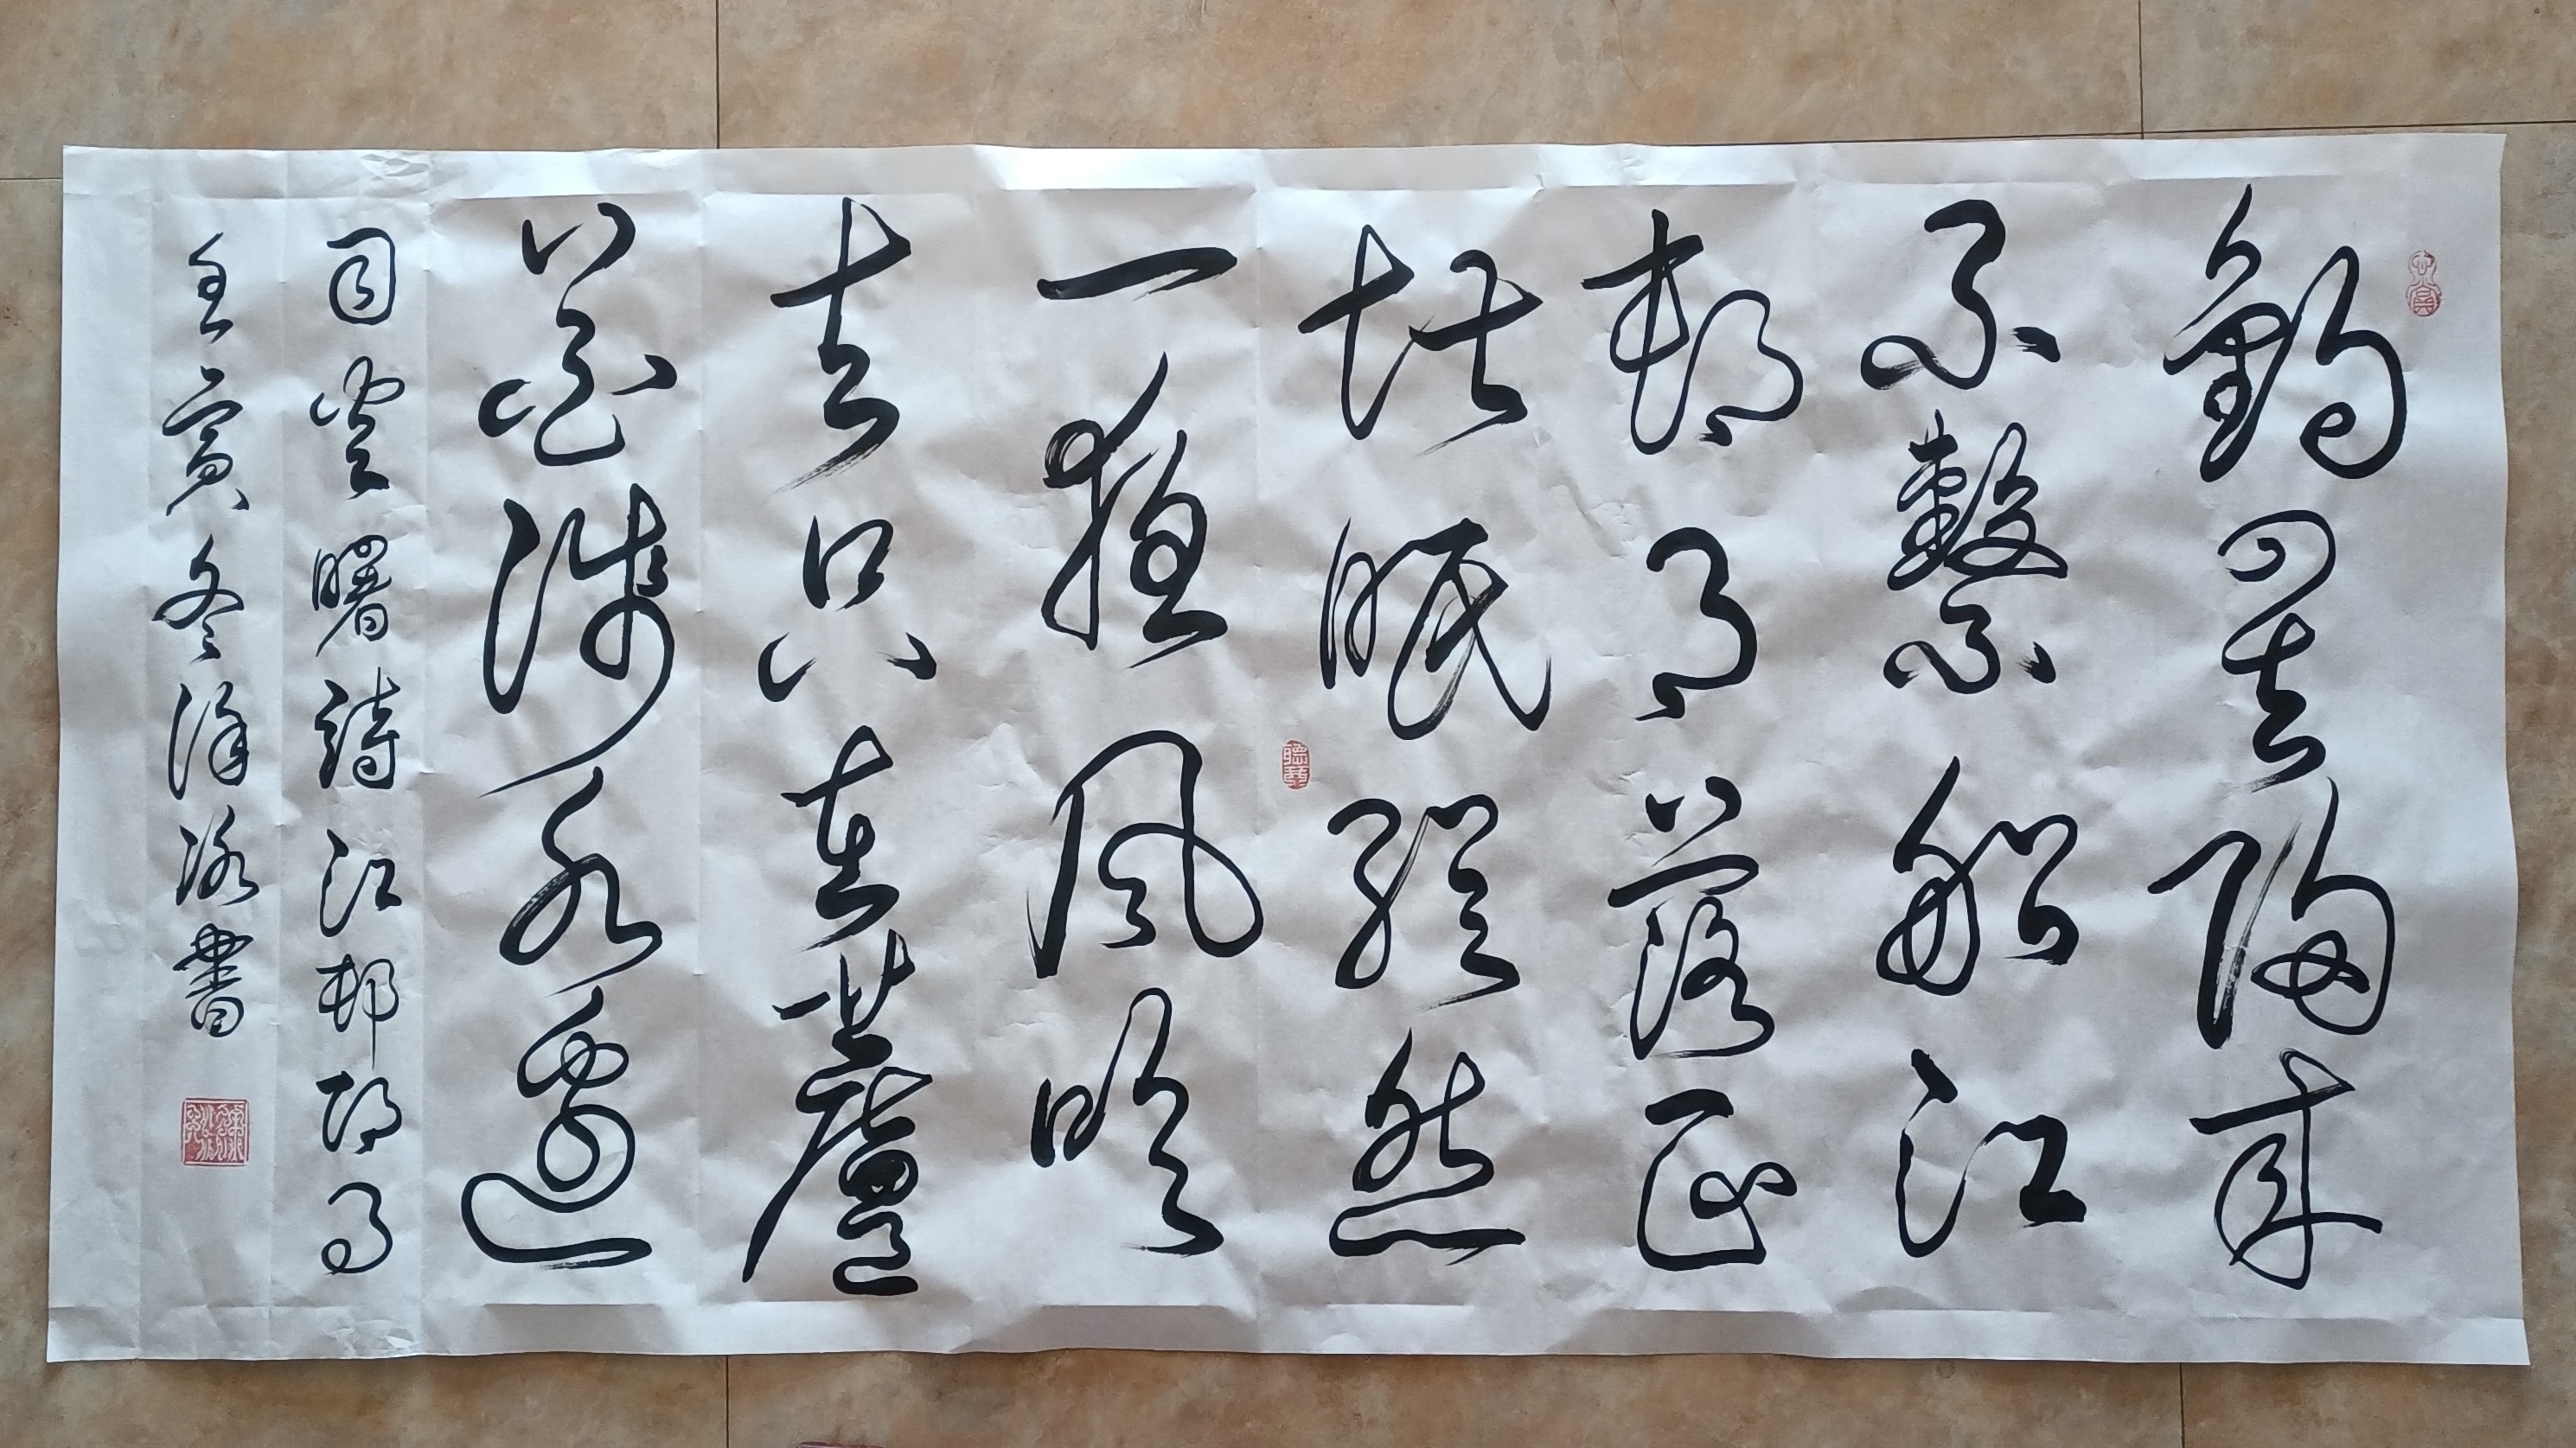 釣罷歸来
不繫船江
邨月落正
堪眠縱然
一夜風吹
去只在蘆
花淺水邊
司空曙詩江邨即事
壬寅冬徐書